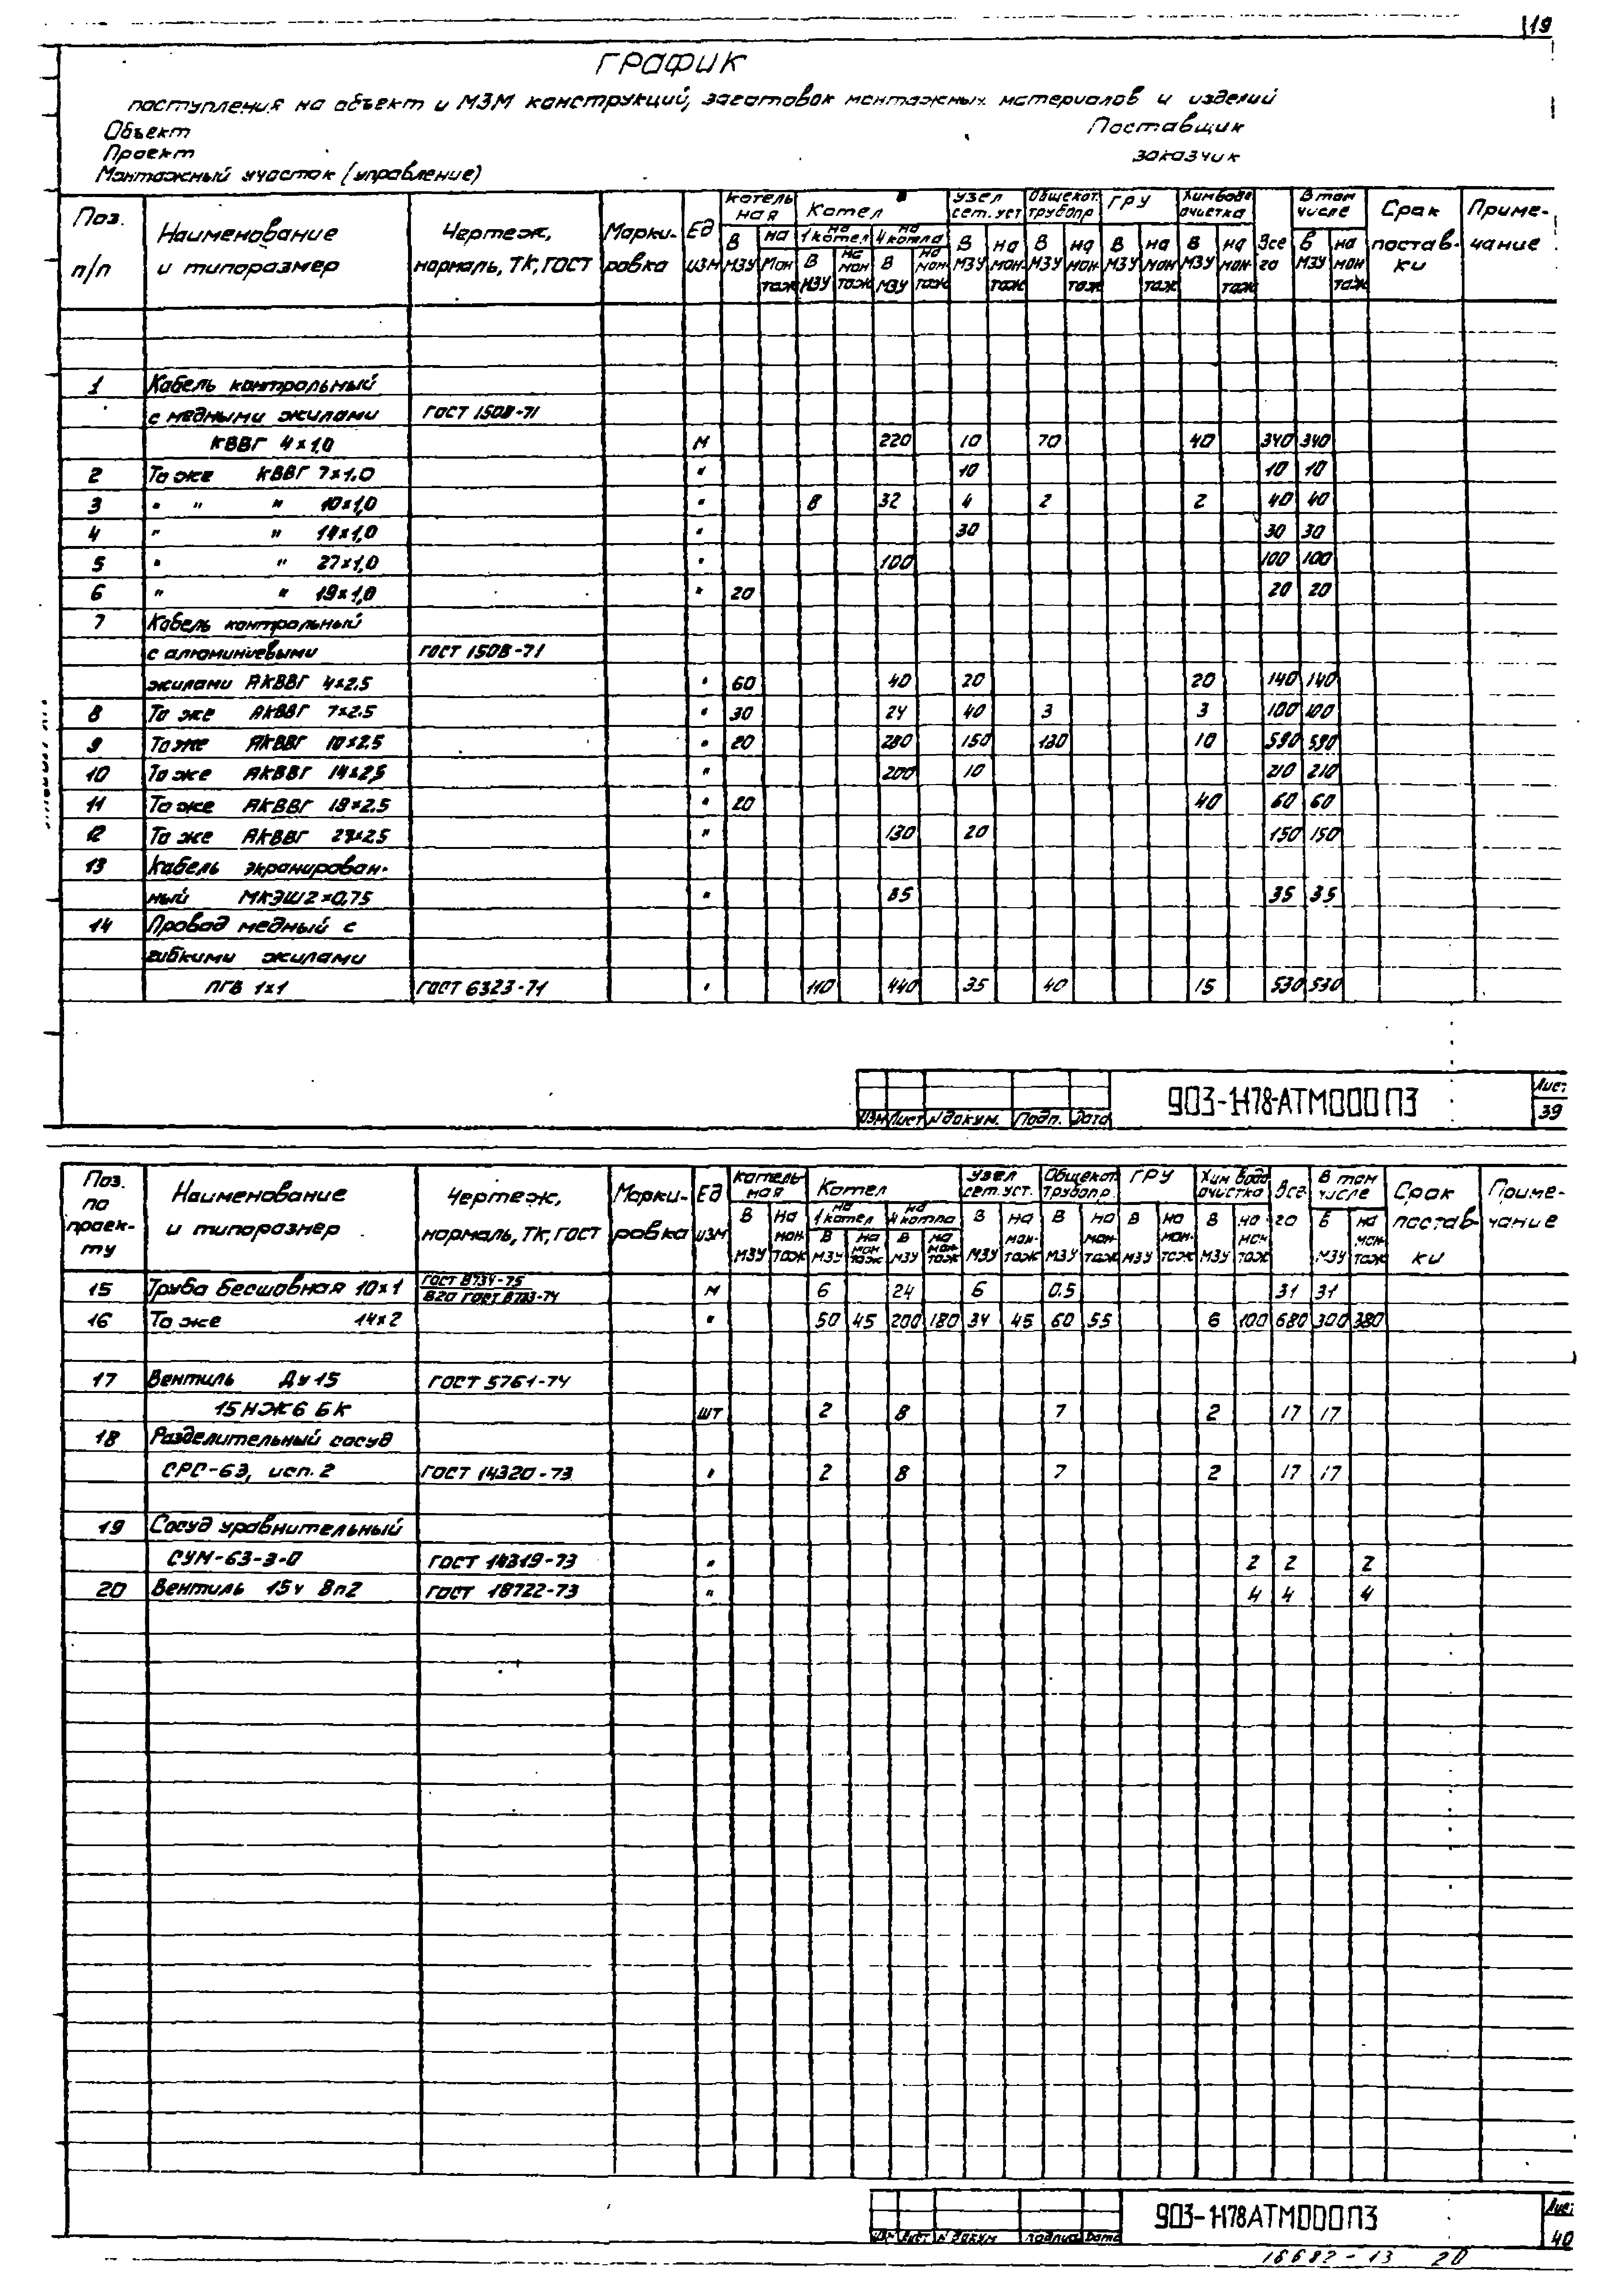 19
График
поступления на объект и МЗМ конструкций, заготовок монтажных материалов и изделий
Объект Поставщик
Проект заказчик
Монтажный участок (управление)
Поз. п/п Наименование и типоразмер Чертеж, нормаль, ТК, ГОСТ Марки-ровка Ед изм Котельная Котел Узел сет. уст Общекот. трубопр ГРУ Химводоочистка Всего В том числе Срок постав-ки Приме-чание
на 1 котел на 4 котла
В МЗУ на мон таж В МЗУ на мон таж В МЗУ на мон таж В МЗУ на мон таж В МЗУ на мон таж В МЗУ на мон таж В МЗУ на мон таж В МЗУ на мон таж
1 Кабель контрольный
с медными жилами ГОСТ 1508-71
КВВГ 4×1,0 м 220 10 70 40 340 340
2 То же КВВГ 7×1,0 " 10 10 10
3 " " " 10×1,0 " 8 32 4 2 2 40 40
4 " " 14×1,0 " 30 30 30
5 " " 27×1,0 " 100 100 100
6 " " 19×1,0 " 20 20 20
7 Кабель контрольный
с алюминиевыми ГОСТ 1508-71
жилами АКВВГ 4×2.5 " 60 40 20 20 140 140
8 То же АКВВГ 7×2.5 " 30 24 40 3 3 100 100
9 То же АКВВГ 10×2.5 " 20 280 150 130 10 590 590
10 То же АКВВГ 14×2,5 " 200 10 210 210
11 То же АКВВГ 19×2.5 " 20 40 60 60
12 То же АКВВГ 27×2.5 " 130 20 150 150
13 Кабель экранирован-
ный МКЭШ 2×0,75 " 35 35 35
14 Провод медный с
гибкими жилами
ПГВ 1×1 ГОСТ 6323-71 " 110 440 35 40 15 530 530
Изм Лист N докум. Подп. Дата
903-1-178-АТМ000ПЗ
Лист 39
Поз. по проек-ту Наименование и типоразмер Чертеж, нормаль, ТК, ГОСТ Марки-ровка Ед изм Котельная Котел Узел сет. уст. Общекот трубопр. ГРУ Хим водо очистка Всего В том числе Срок постав-ки Приме-чание
на 1 котел на 4 котла
В МЗУ На мон таж В МЗУ на мон таж В МЗУ на мон таж В МЗУ на мон-таж В МЗУ на мон-таж В МЗУ на мон-таж В МЗУ на мон таж В МЗУ на мон таж
15 Труба бесшовная 10×1 ГОСТ 8734-75 м 6 24 6 0.5 31 31
В20 ГОСТ 8733-74
16 То же 14×2 " 50 45 200 180 34 45 60 55 6 100 680 300 380
17 Вентиль Ду 15 ГОСТ 5761-74
15НЖ6 БК шт 2 8 7 2 17 17
18 Разделительный сосуд
СРС-63, исп. 2 ГОСТ 14320-73 " 2 8 7 2 17 17
19 Сосуд уравнительный
СУМ-63-3-0 ГОСТ 14319-73 " 2 2 2
20 Вентиль 15ч 8п2 ГОСТ 18722-73 " 4 4 4
Изм Лист N докум подпись Дата
903-1-178АТМ000ПЗ
Лист 40
16682-13 20